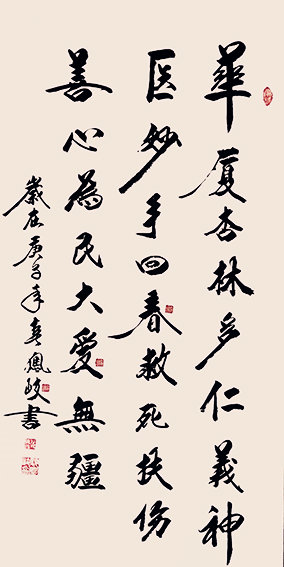 華厦杏林多仁義神
医妙手回春救死扶伤
善心為民大愛無疆
歲在庚子年吳鳳岐書